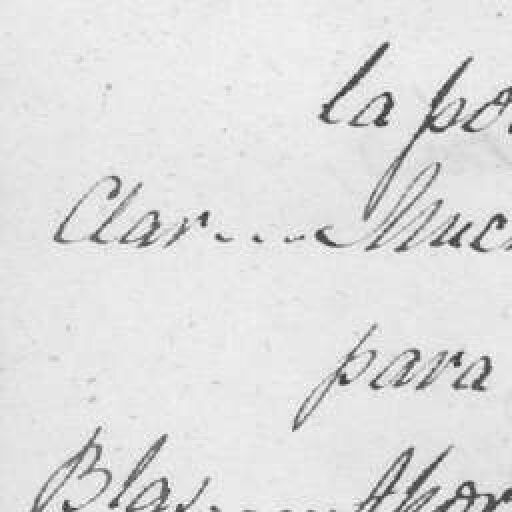 la po
Clar.... Muc
para
Blas.... Ahor